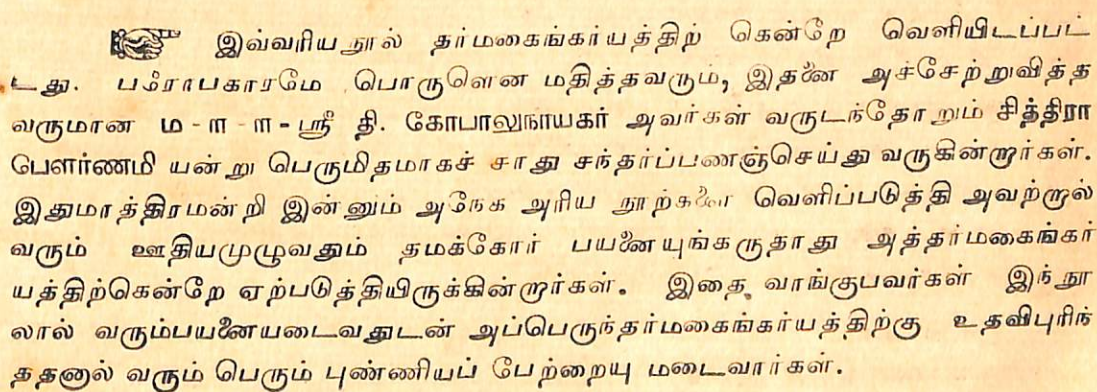 ☞ இவ்வரிய நூல் தர்மகைங்கர்யத்திற் கென்றே வெளியிடப்பட்
டது. பரோபகாரமே பொருளென மதித்தவரும், இதனை அச்சேற்றுவித்த
வருமான ம-ா-ா-ஸ்ரீ தி. கோபாலுநாயகர் அவர்கள் வருடந்தோறும் சித்திரா
பௌர்ணமி யன்று பெருமிதமாகச் சாது சந்தர்ப்பணஞ்செய்து வருகின்றார்கள்.
இதுமாத்திரமன்றி இன்னும் அநேக அரிய நூற்களை வெளிப்படுத்தி அவற்றால்
வரும் ஊதியமுழுவதும் தமக்கோர் பயனையுங்கருதாது அத்தர்மகைங்கர்
யத்திற்கென்றே ஏற்படுத்தியிருக்கின்றார்கள். இதை வாங்குபவர்கள் இந்நூ
லால் வரும்பயனையடைவதுடன் அப்பெருந்தர்மகைங்கர்யத்திற்கு உதவிபுரிந்
ததனால் வரும் பெரும் புண்ணியப் பேற்றையு மடைவார்கள்.